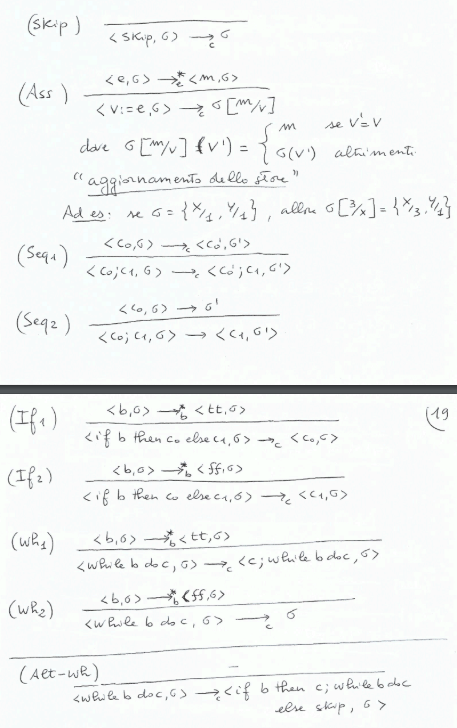 (Skip)
<skip, σ> →c σ
(Ass) <e,σ> →*e <m,σ>
<v:=e,σ> →c σ[m/v]
dove σ[m/v](v') = { m se v'=v
σ(v') altrimenti
"aggiornamento dello store"
Ad es: se σ={X/1, Y/1}, allora σ[3/x]={X/3, Y/1}
(Seq1) <c0,σ> →c <c0',σ'>
<c0;c1,σ> →c <c0';c1,σ'>
(Seq2) <c0,σ> → σ'
<c0;c1,σ> → <c1,σ'>
(If1) <b,σ> →*b <tt,σ> 19
<if b then c0 else c1,σ> →c <c0,σ>
(If2) <b,σ> →*b <ff,σ>
<if b then c0 else c1,σ> →c <c1,σ>
(Wh1) <b,σ> →*b <tt,σ>
<while b do c,σ> →c <c; while b do c,σ>
(Wh2) <b,σ> →*b <ff,σ>
<while b do c,σ> →c σ
(Alt-wh) –
<while b do c,σ> →c <if b then c; while b do c
else skip, σ>